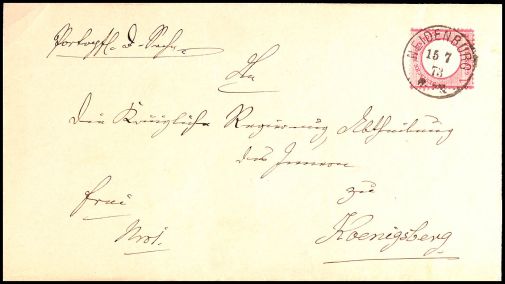 Portopfl. D. Sache
NEIDENBURG
15 7
73
An
Die Königliche Regierung Abtheilung
des Innern
zu
frei
Koenigsberg